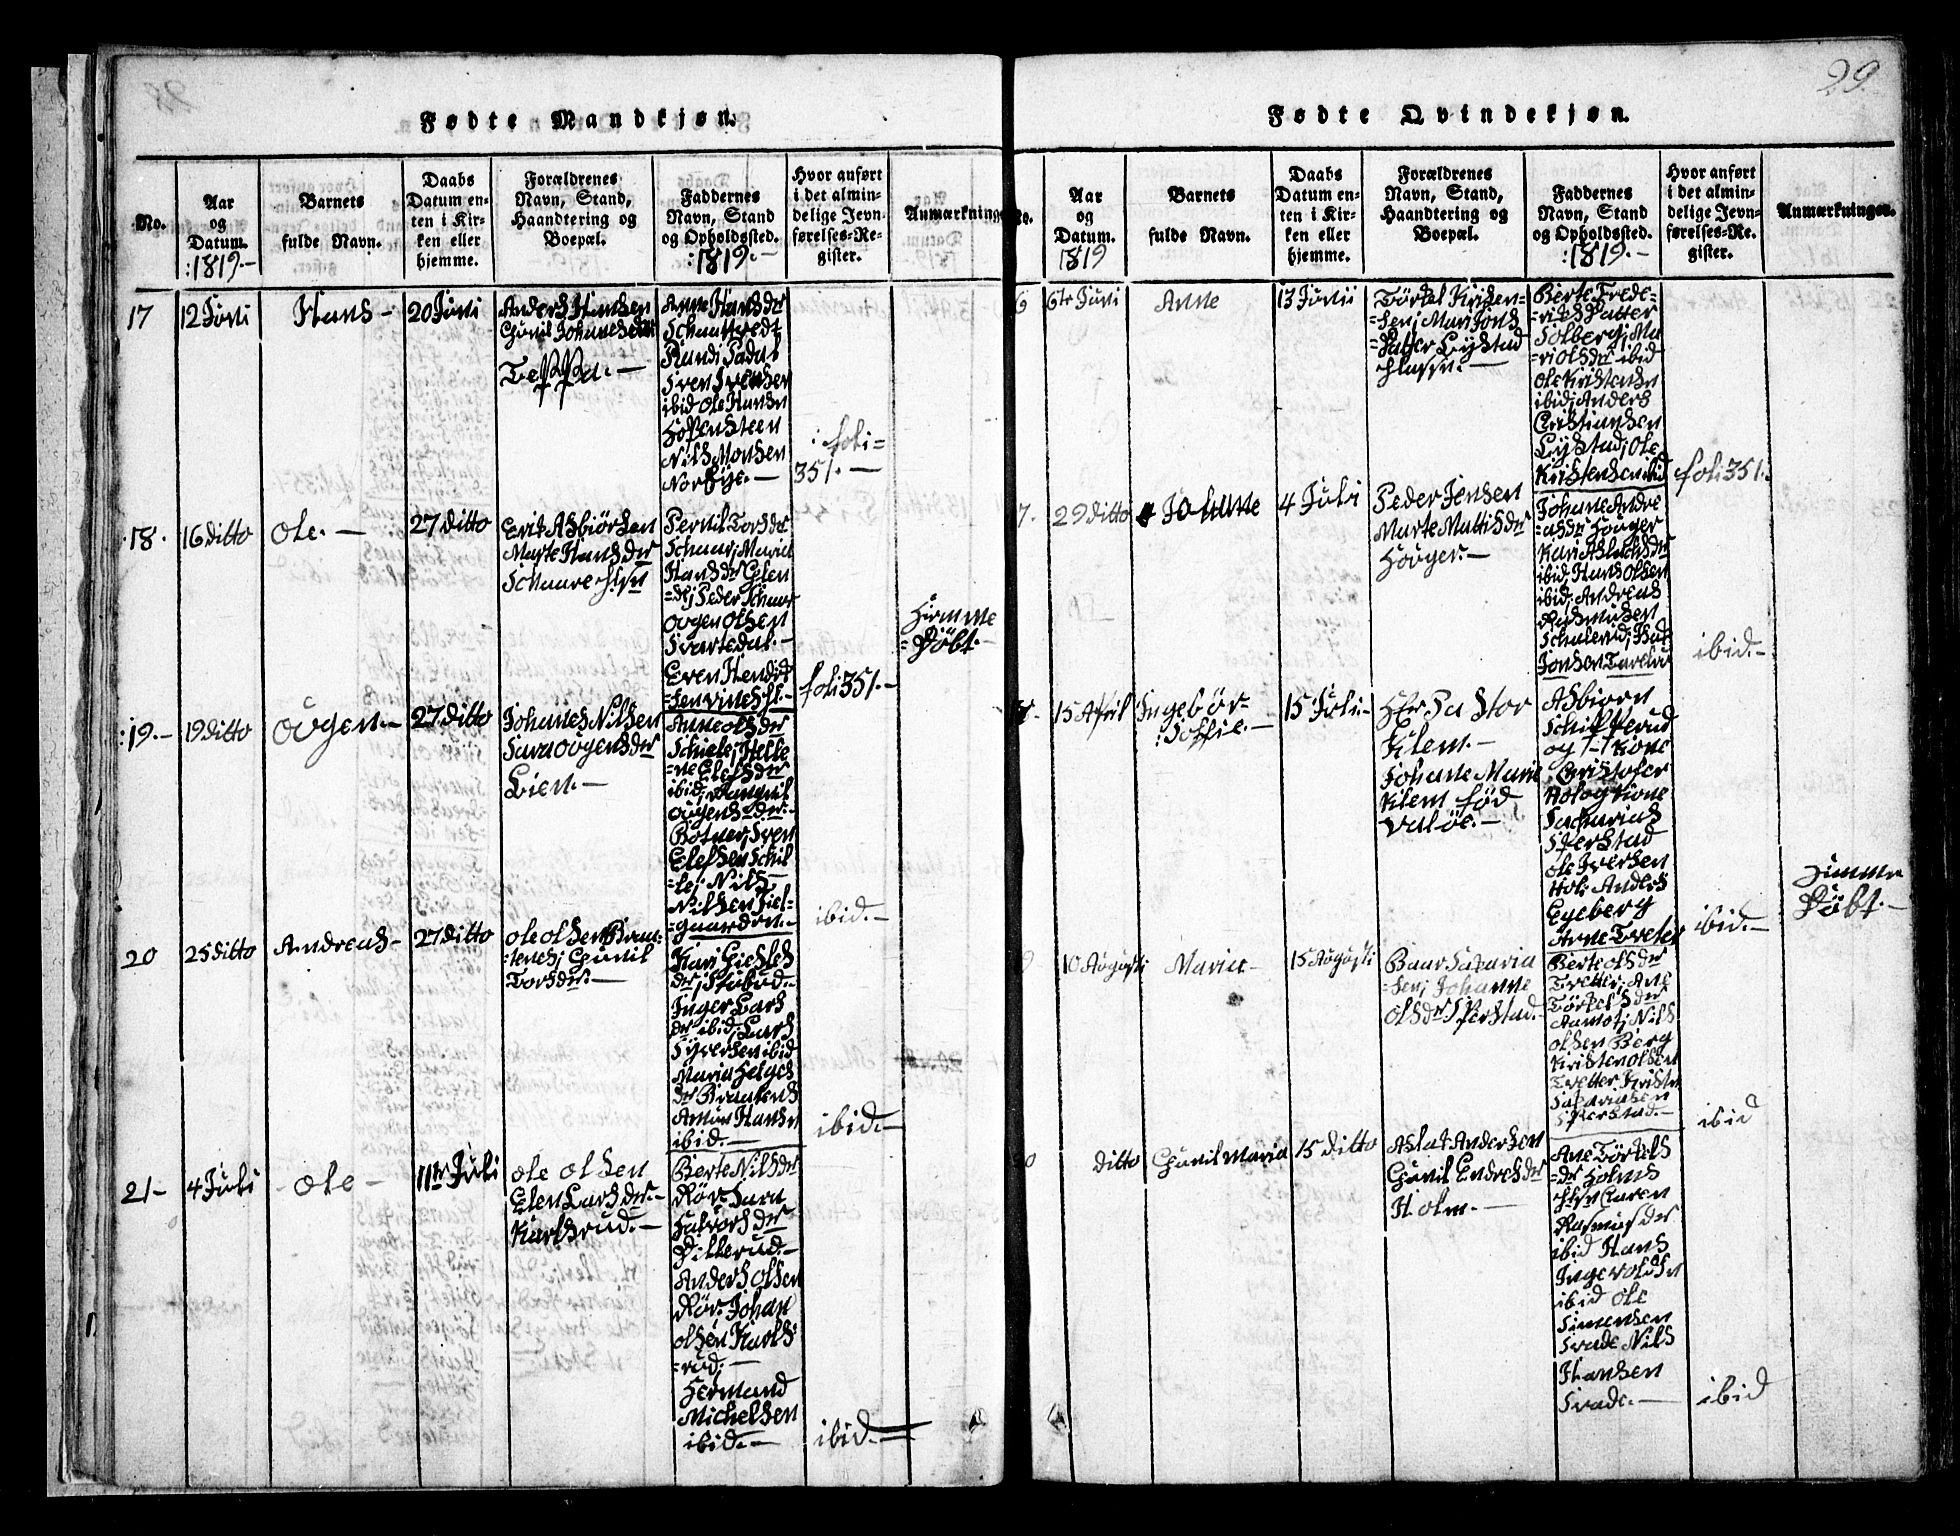 29
Fødte Mandkjøn.
No.
Aar
og
Datum.
:1819.-
Barnets
fulde Navn.
Daabs
Datum en-
ten i Kir-
ken eller
hjemme.
Forældrenes
Navn, Stand,
Haandtering og
Boepæl.
Faddernes
Navn, Stand
og Opholdssted.
:1819.-
Hvor anført
i det almin-
delige Jevn-
førelses-Re-
gister.
Anmærkninge
17
12 Juni
Hans-
20 Juni
Anders Hansen
Gunil Johanesda
Teppa.-
Anne Hansdr
Randi Sadal
Sven Svensen
ibid Ole Hansn
Hofensteen
Nils Monsen
Norbye.-
: foli=
351.-
:18.
16 ditto
Ole.-
27 ditto
Erik Asbiörsen
Marte Hansdr
Schaare
Pernil Torsdr
Schaar; Maria
Hansdr Elen
=dr; Peder Schaar
Ougen Olsen
Svartedal.-
Even Hendrik
=sen
foli 351.-
Himme
=Döbt.-
:19.-
19 ditto
Ougen.-
27 ditto
Johanes Nilsen
Sara Ougensdr
Lien.-
Anne Olsdr
Schiele; Helle
=ne Elefsdr
ibid;
Ougensdr.-
Botner; Sven
Elefsen Schil
=le; Nils
Nilsen Fiel-
gaarden.-
ibid.-
20
25 ditto
Andreas-
27 ditto
Ole Olsen Bran-
=tenes; Gunil
Torsdr.-
Kari Giesles
dr; Stubud.-
Inger Lars
dr ibid; Lars
Syversen ibid
Maria Helges
dr Brantens
Hansn
ibid.-
ibid.-
21-
4 Juli
-Ole-
11te Juli
Ole Olsen
Elen Larsdr.-
Karlsrud.-
Bierte Nilsdr
Rör. Sara
Halvorsdr
Dillerud.-
Anders Olsen
Rör. Johan
Olsen Karls
=rud.-
Hermand
Michelsen
ibid.-
ibid.-
Fødte Qvindekjøn.
No.
Aar
og
Datum.
1819
Barnets
fulde Navn.
Daabs
Datum en-
ten i Kir-
ken eller
hjemme.
Forældrenes
Navn, Stand,
Haandtering og
Boepæl.
Faddernes
Navn, Stand
og Opholdssted.
:1819.-
Hvor anført
i det almin-
delige Jevn-
førelses-Re-
gister.
Anmærkninger.
6
6te Juni
Anne
13 Junii
Törkel Kristen-
=sen; Mari Jons
=Datter Lystad
Berte Frede-
=riks Datter
Solberg; Ma
=ri Olsdr ibid
Ole Kristensn
ibid; Anders
Cristiansen
Lystad; Ole
Kristensen ibid
foli 351.-
7.
29 ditto
Johanne
4 Juli
Peder Jensen
Marte Mattisdr
Houger.-
Johane Andre
=asdr Houger
Kari Aslachsdr
ibid; Hans Olsen
ibid; Andreas
Rasmusen
Schulerud;
Jonsen
ibid.-
15 April
Ingebör-
:Soffie.-
15 Juli.-
Hr Pastor
Klem.-
Johane Marie
Klem fød
Valöe.-
Asbiorn
Schipperud
og Kone
Cristofer
Holog Kone
Sacharias
Sperstad
Ole Iversen
Hol; Anders
Egeberg
Arne Tveter
ibid.-
Himme
Döbt.-
10 Augusti
Maria-
15 Augusti
Baar Sakaria
=sen; Johanne
Olsdr Sperstad.-
Berte Olsdr
Tvetter; Ane
Törkelsdr
Aamot; Nils
Olsen Berg
Kristen Olsen
Tvetter Kristn
Sakariasen
Sperstad.-
ibid
0
ditto
Gunil Maria
15 ditto
Aslak Andersen
Gunil Endresdr
Holm.-
Ane Törkels
=dr Holms
Caren
Rasmusdr
ibid Hans
Ingevolsn
ibid Ole
Simensen
Svade Nils
Hansen
Svade.-
ibid